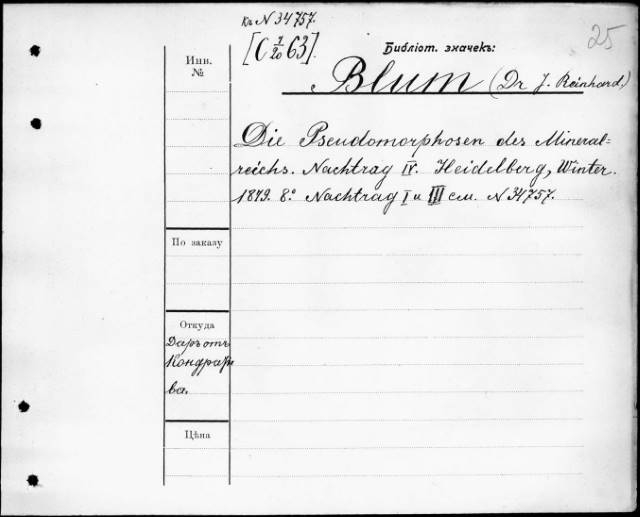 Къ N 34757.
25
[C 1/20 63].
Библіот. значекъ:
Инв.
№
Blum (Dr J. Reinhard,)
Die Pseudomorphosen des Mineral=
reichs. Nachtrag IV. Heidelberg, Winter.
1879. 8.° Nachtrag I и III см. N 34757.
По заказу
Откуда
Даръ отъ
Кондратье
ва.
Цѣна